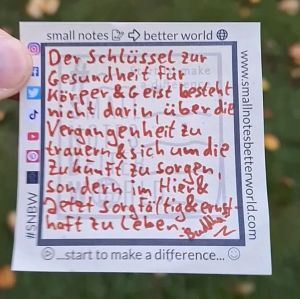 small notes ⇨ better world
Der Schlüssel zur
Gesundheit für
Körper & Geist besteht
nicht darin, über die
Vergangenheit zu
trauern & sich um die
Zukunft zu sorgen,
sondern im Hier &
Jetzt sorgfältig & ernst-
haft zu leben.
-Buddha
...start to make a difference...
#SNBW
www.smallnotesbetterworld.com